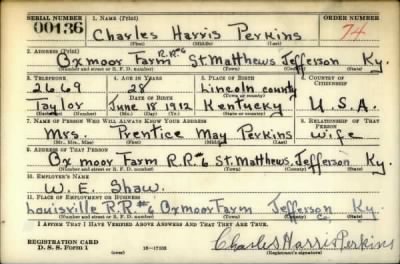 SERIAL NUMBER 1. NAME (Print) ORDER NUMBER
00136 Charles Harris Perkins 74
(First) (Middle) (Last)
2. ADDRESS (Print)
Oxmoor Farm R.R.#6 St. Matthews Jefferson Ky.
(Number and street or R. F. D. number) (Town) (County) (State)
3. TELEPHONE 4. AGE IN YEARS 5. PLACE OF BIRTH 6. COUNTRY OF CITIZENSHIP
2669 28 Lincoln county
DATE OF BIRTH (Town or county)
Taylor June 18 1912 Kentucky U.S.A.
(Exchange) (Number) (Mo.) (Day) (Yr.) (State or country)
7. NAME OF PERSON WHO WILL ALWAYS KNOW YOUR ADDRESS 8. RELATIONSHIP OF THAT PERSON
Mrs. Prentice May Perkins wife
(Mr., Mrs., Miss) (First) (Middle) (Last)
9. ADDRESS OF THAT PERSON
Oxmoor Farm R.R.#6 St. Matthews, Jefferson Ky.
(Number and street or R. F. D. number) (Town) (County) (State)
10. EMPLOYER'S NAME
W. E. Shaw.
11. PLACE OF EMPLOYMENT OR BUSINESS
Louisville R.R.#6 Oxmoor Farm Jefferson Co. Ky.
(Number and street or R. F. D. number) (Town) (County) (State)
I AFFIRM THAT I HAVE VERIFIED ABOVE ANSWERS AND THAT THEY ARE TRUE.
REGISTRATION CARD
D. S. S. Form 1 (over) 16-17105 Charles Harris Perkins